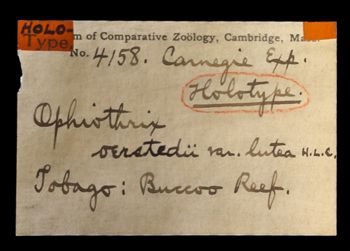 HOLO-
Type
m of Comparative Zoölogy, Cambridge, Mass.
No. 4158. Carnegie Exp.
Holotype.
Ophiothrix
oerstedii var. lutea H.L.C.
Tobago: Buccoo Reef.